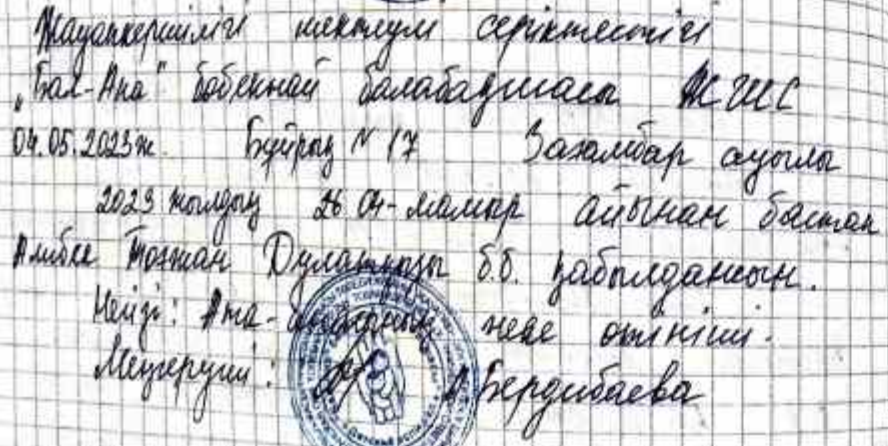 Жауапкершілігі шектеулі серіктестігі
"Бал-Ана" бөбекжай балабақшасы ЖШС
04.05.2023ж. Бұйрық N 17 Зағамбар ауылы
2023 жылдың 04-мамыр айынан бастап
Тоғжан Дулатқызы б.б. қабылдансын.
Негізі: Ата-ананың жеке өтініші.
Меңгеруші: А Бердибаева